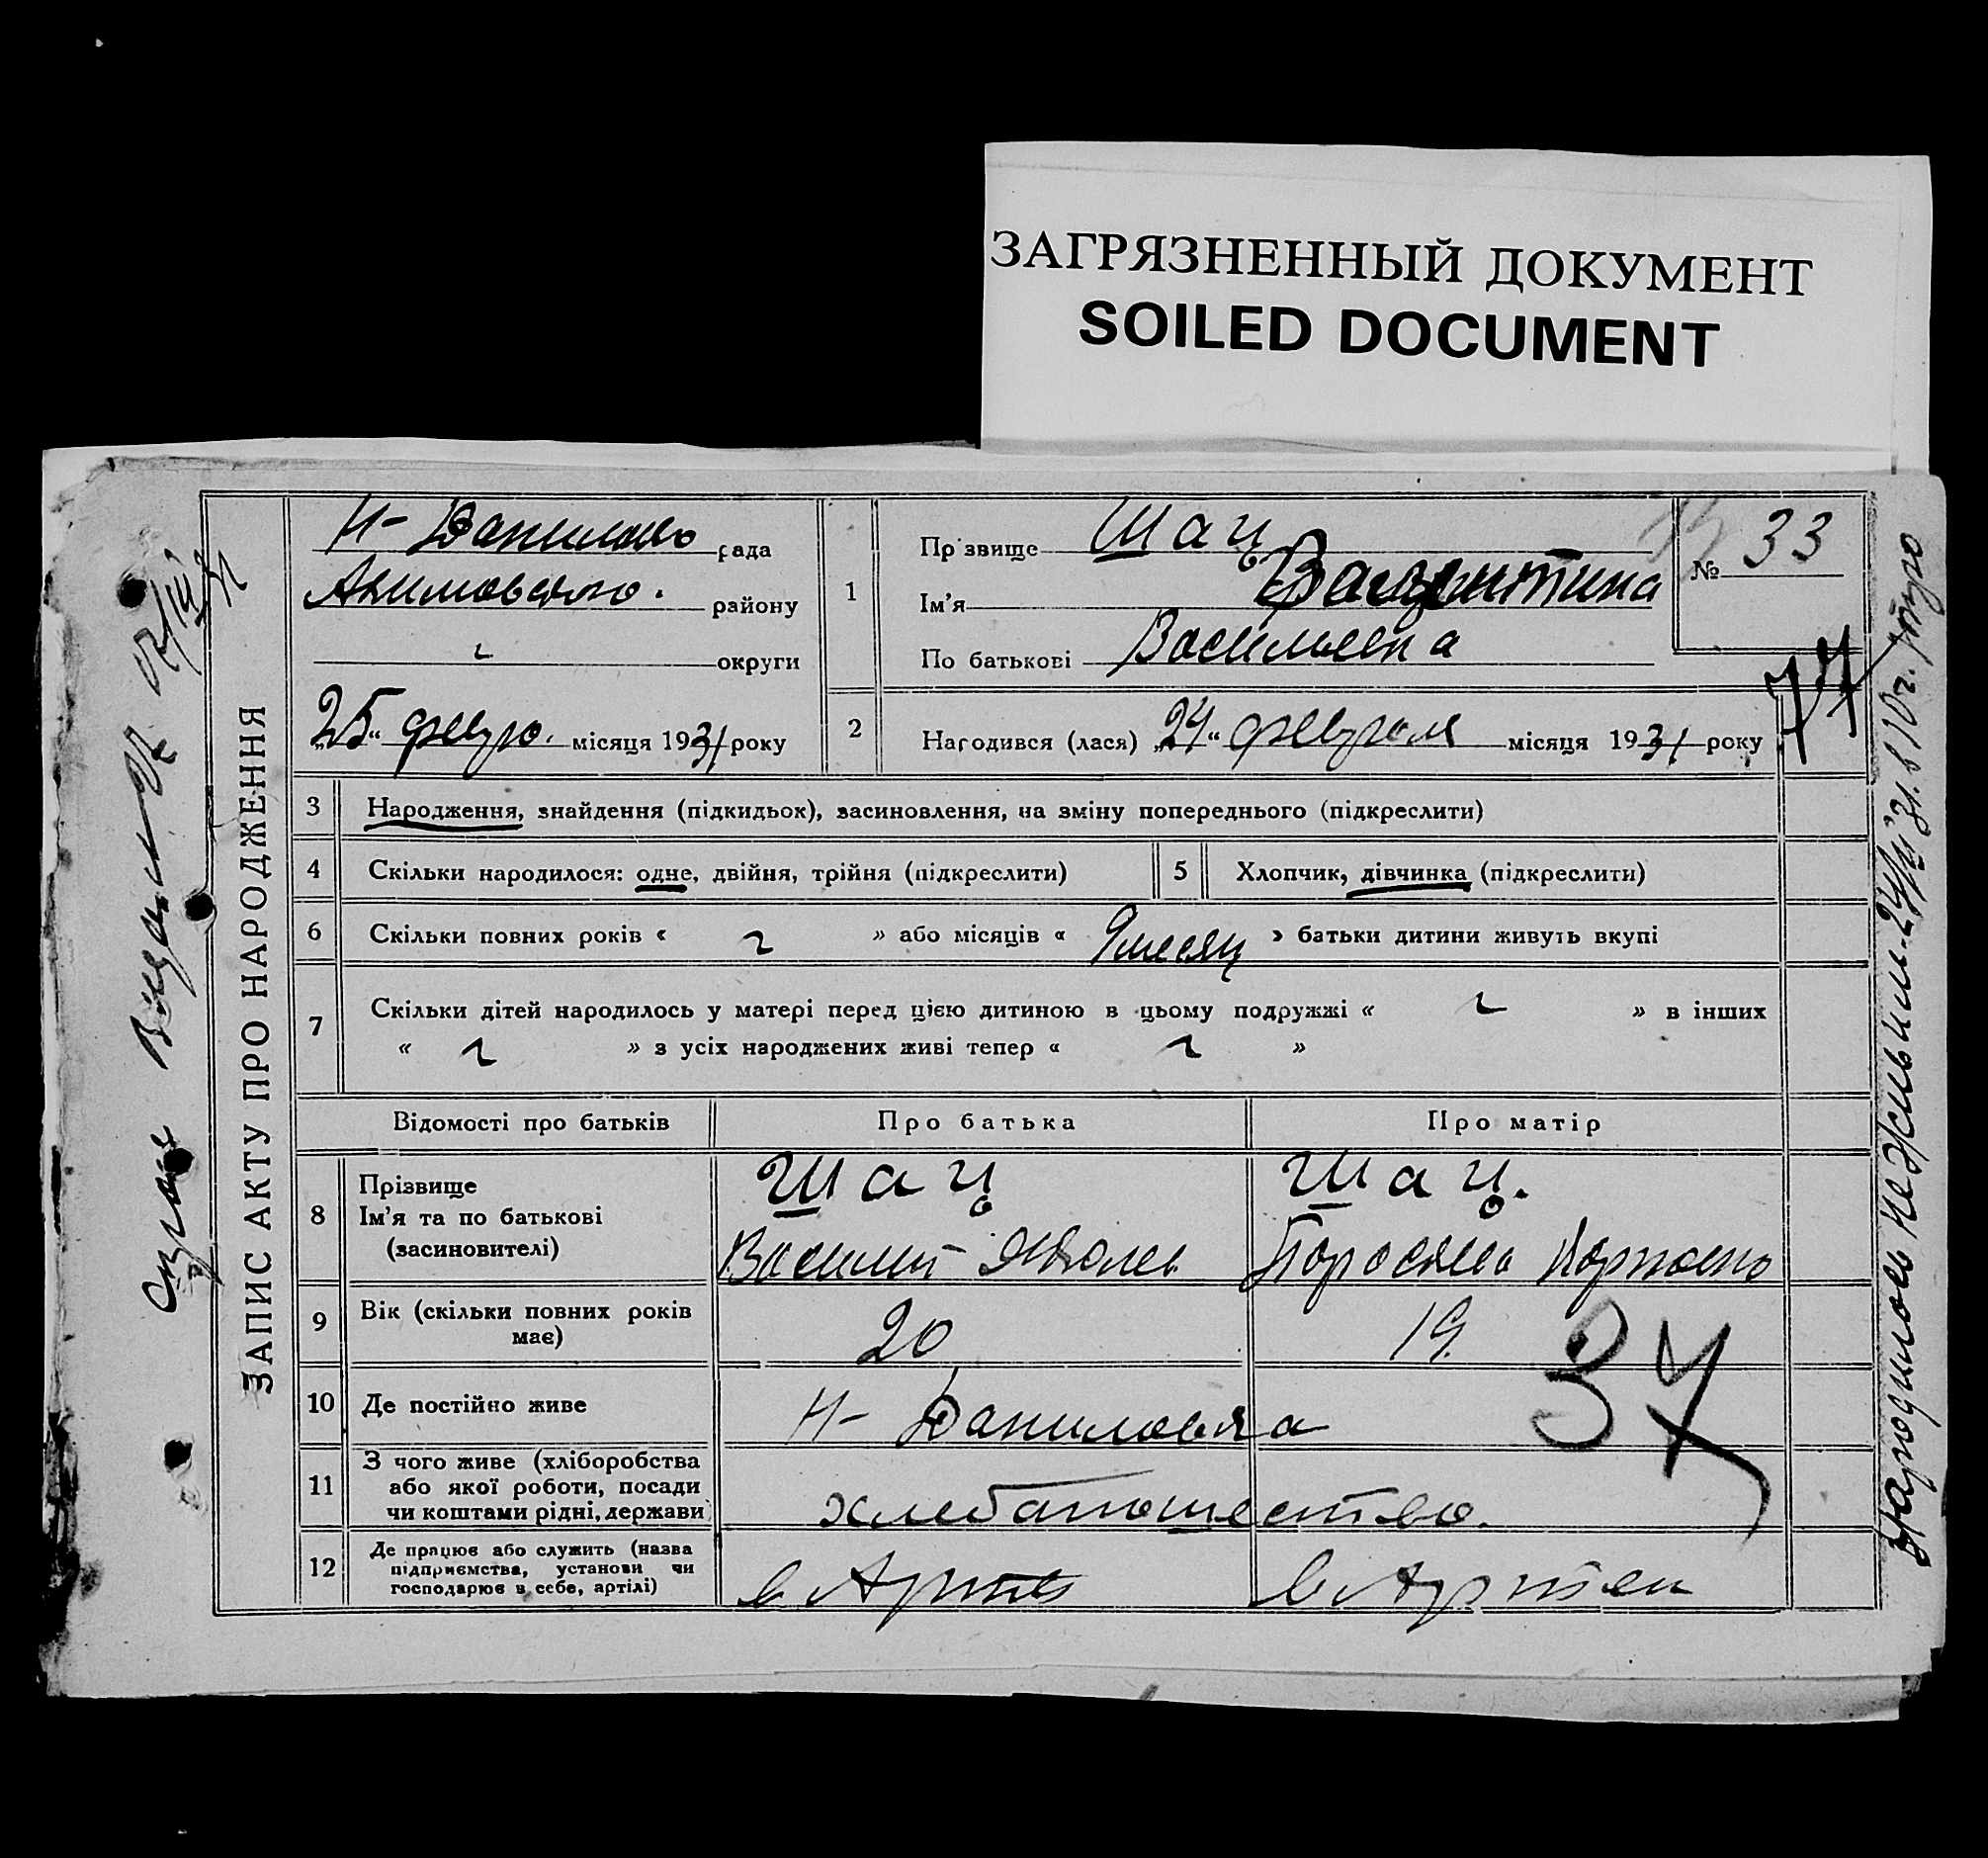 ЗАГРЯЗНЕННЫЙ ДОКУМЕНТ
SOILED DOCUMENT
ЗАПИС АКТУ ПРО НАРОДЖЕННЯ
Н- рада
району
округи
„25“ февр. місяця 1931 року
1
Прізвище Шац
Ім'я Валентина
По батькові Васильевна
№ 33
2
Народився (лася) „24“ февраля місяця 1931 року
3 Народження, знайдення (підкидьок), засиновлення, на зміну попереднього (підкреслити)
4 Скільки народилося: одне, двійня, трійня (підкреслити)
5 Хлопчик, дівчинка (підкреслити)
6 Скільки повних років « » або місяців « 9 месяц » батьки дитини живуть вкупі
7 Скільки дітей народилось у матері перед цією дитиною в цьому подружжі « » в інших
« » з усіх народжених живі тепер « »
Відомості про батьків Про батька Про матір
8 Прізвище
Ім'я та по батькові
(засиновителі)
Шац Шац.
Василий
9 Вік (скільки повних років
має)
20 19.
37
10 Де постійно живе
Н- Даниловка
11 З чого живе (хліборобства
або якої роботи, посади
чи коштами рідні, держави
12 Де працює або служить (назва
підприємства, установи чи
господарює в себе, артілі)
в в Артели